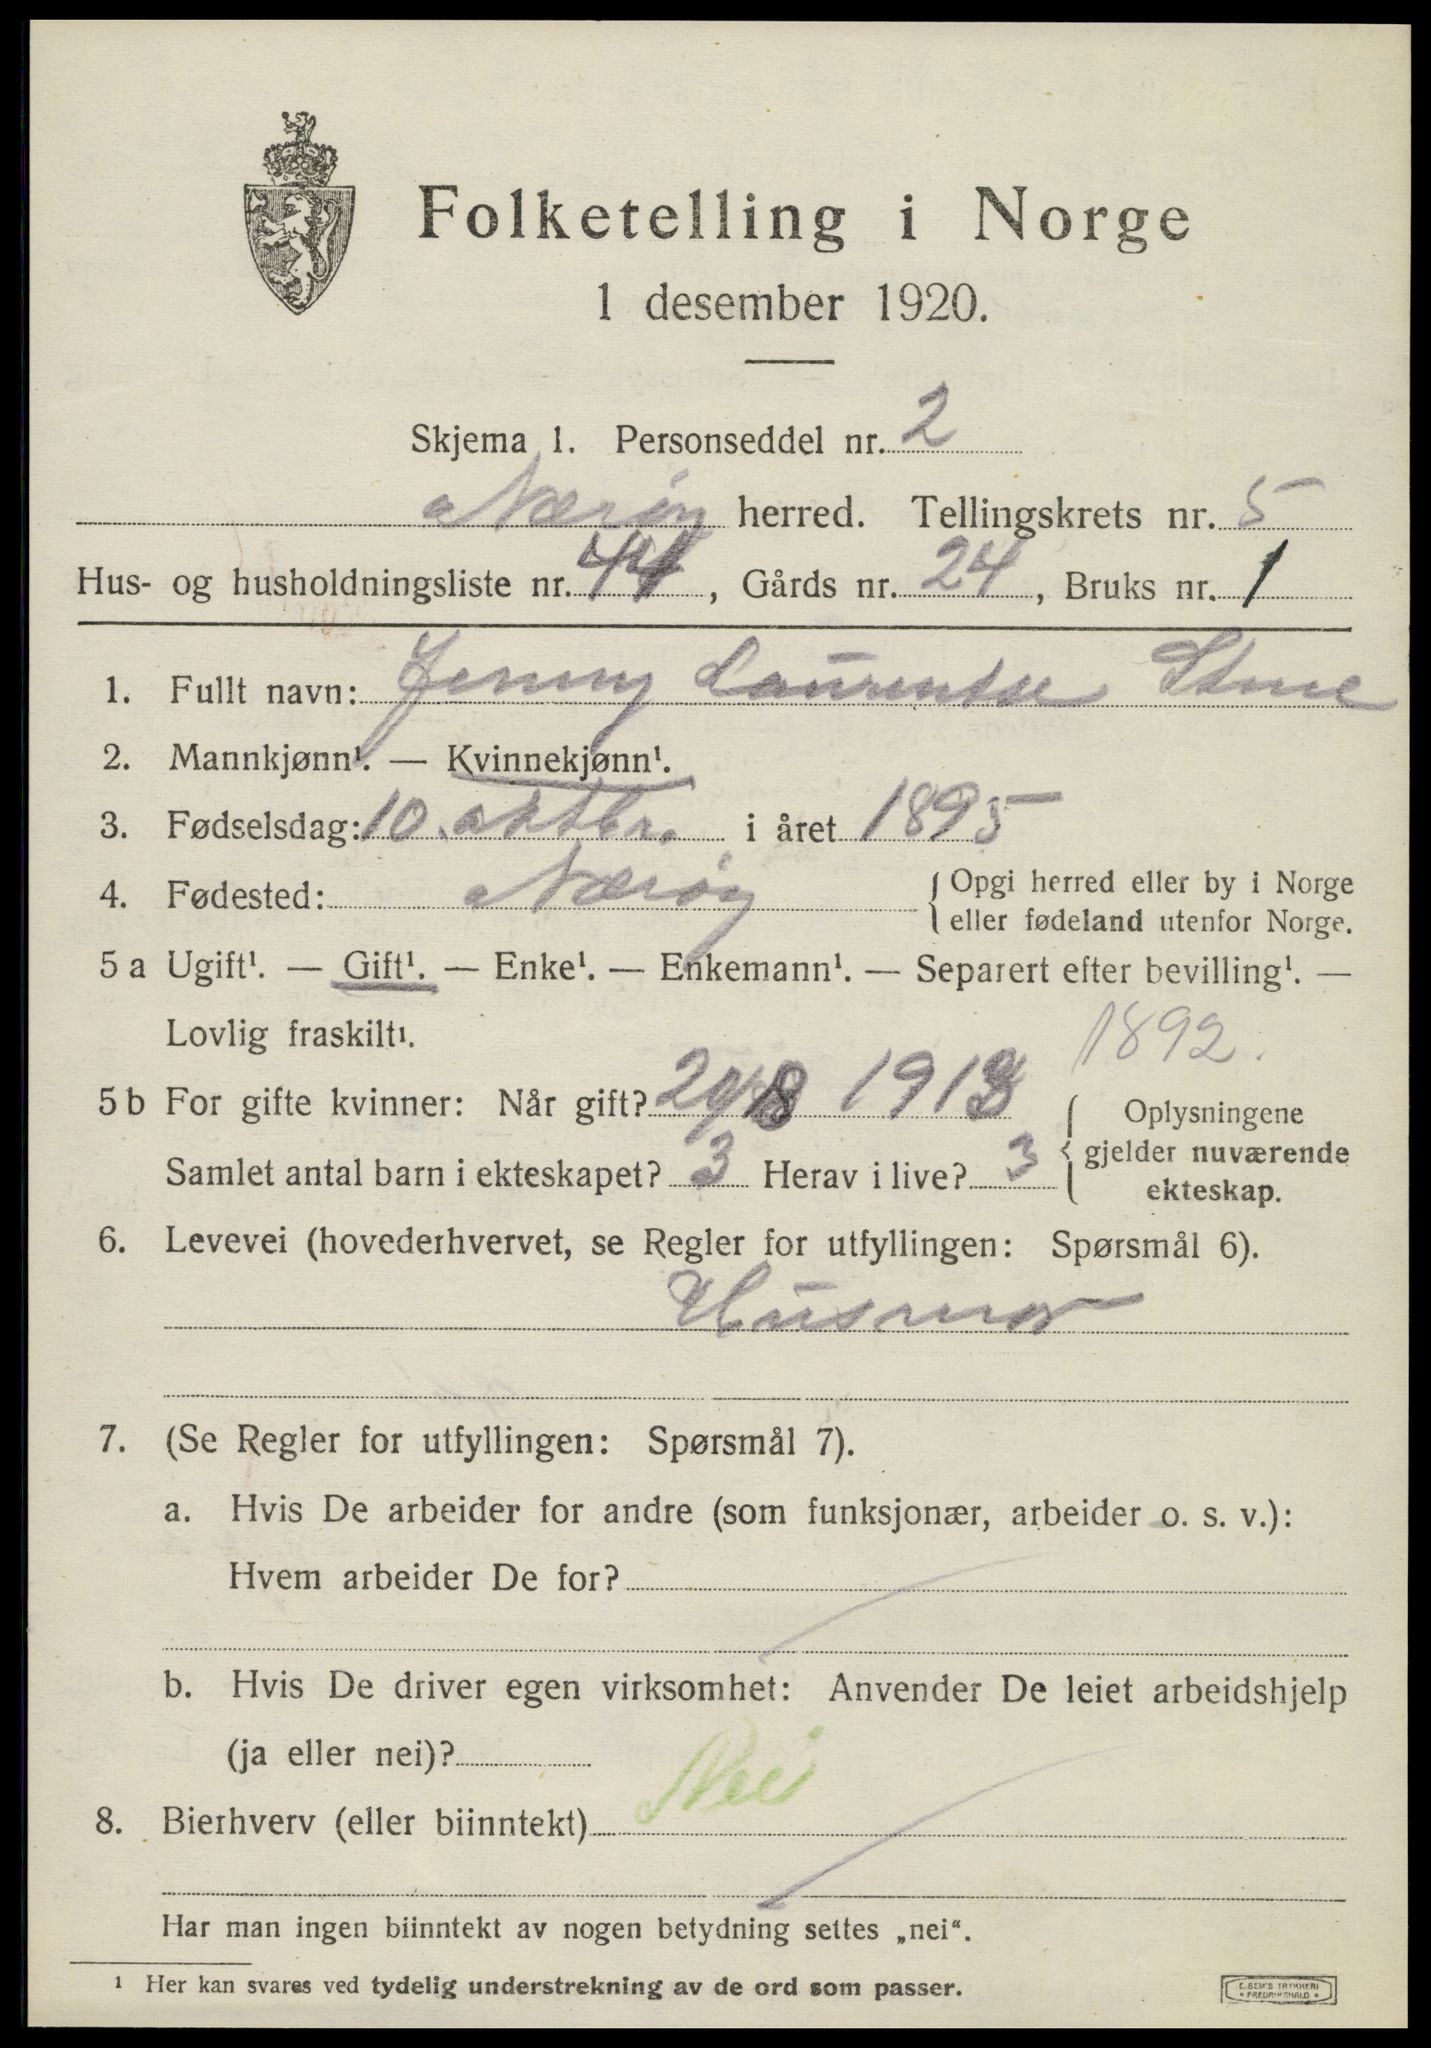 Folketelling i Norge
1 desember 1920.
Skjema 1. Personseddel nr. 2
Nærøy herred. Tellingskrets nr. 5
Hus- og husholdningsliste nr. 44, Gårds nr. 24, Bruks nr. 1
1. Fullt navn: Jenny
2. Mannkjønn¹. — Kvinnekjønn¹.
3. Fødselsdag: 10. oktbr. i året 1895
4. Fødested: Nærøy { Opgi herred eller by i Norge
eller fødeland utenfor Norge.
5 a Ugift¹. — Gift¹. — Enke¹. — Enkemann¹. — Separert efter bevilling¹. —
Lovlig fraskilt¹.
1892.
5 b For gifte kvinner: Når gift? { Oplysningene
gjelder nuværende
ekteskap.
Samlet antal barn i ekteskapet? 3 Herav i live? 3
6. Levevei (hovederhvervet, se Regler for utfyllingen: Spørsmål 6).
Husmor
7. (Se Regler for utfyllingen: Spørsmål 7).
a. Hvis De arbeider for andre (som funksjonær, arbeider o. s. v.):
Hvem arbeider De for?
b. Hvis De driver egen virksomhet: Anvender De leiet arbeidshjelp
(ja eller nei)?
8. Bierhverv (eller biinntekt) Nei
Har man ingen biinntekt av nogen betydning settes „nei“.
¹ Her kan svares ved tydelig understrekning av de ord som passer.
E. SEM'S TRYKKERI
• FREDRIKSHALD •